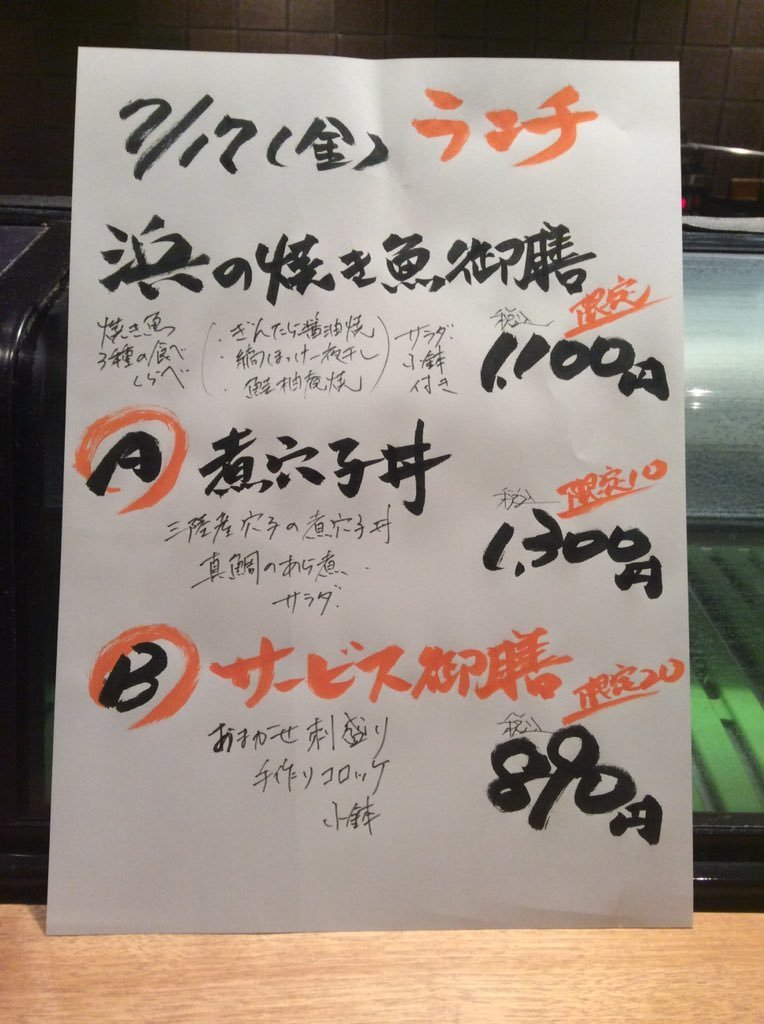 7/17(金) ランチ
浜の焼き魚御膳
限定
焼き魚
3種の食べ
くらべ
・ぎんだら醤油焼
・縞ほっけ一夜干し
・鮭柚庵焼
サラダ
小鉢
付き
税込
1,100円
A 煮穴子丼
限定10
三陸産穴子の煮穴子丼
真鯛のあら煮
サラダ
税込
1,300円
B サービス御膳
限定20
おまかせ刺盛り
手作りコロッケ
小鉢
税込
890円